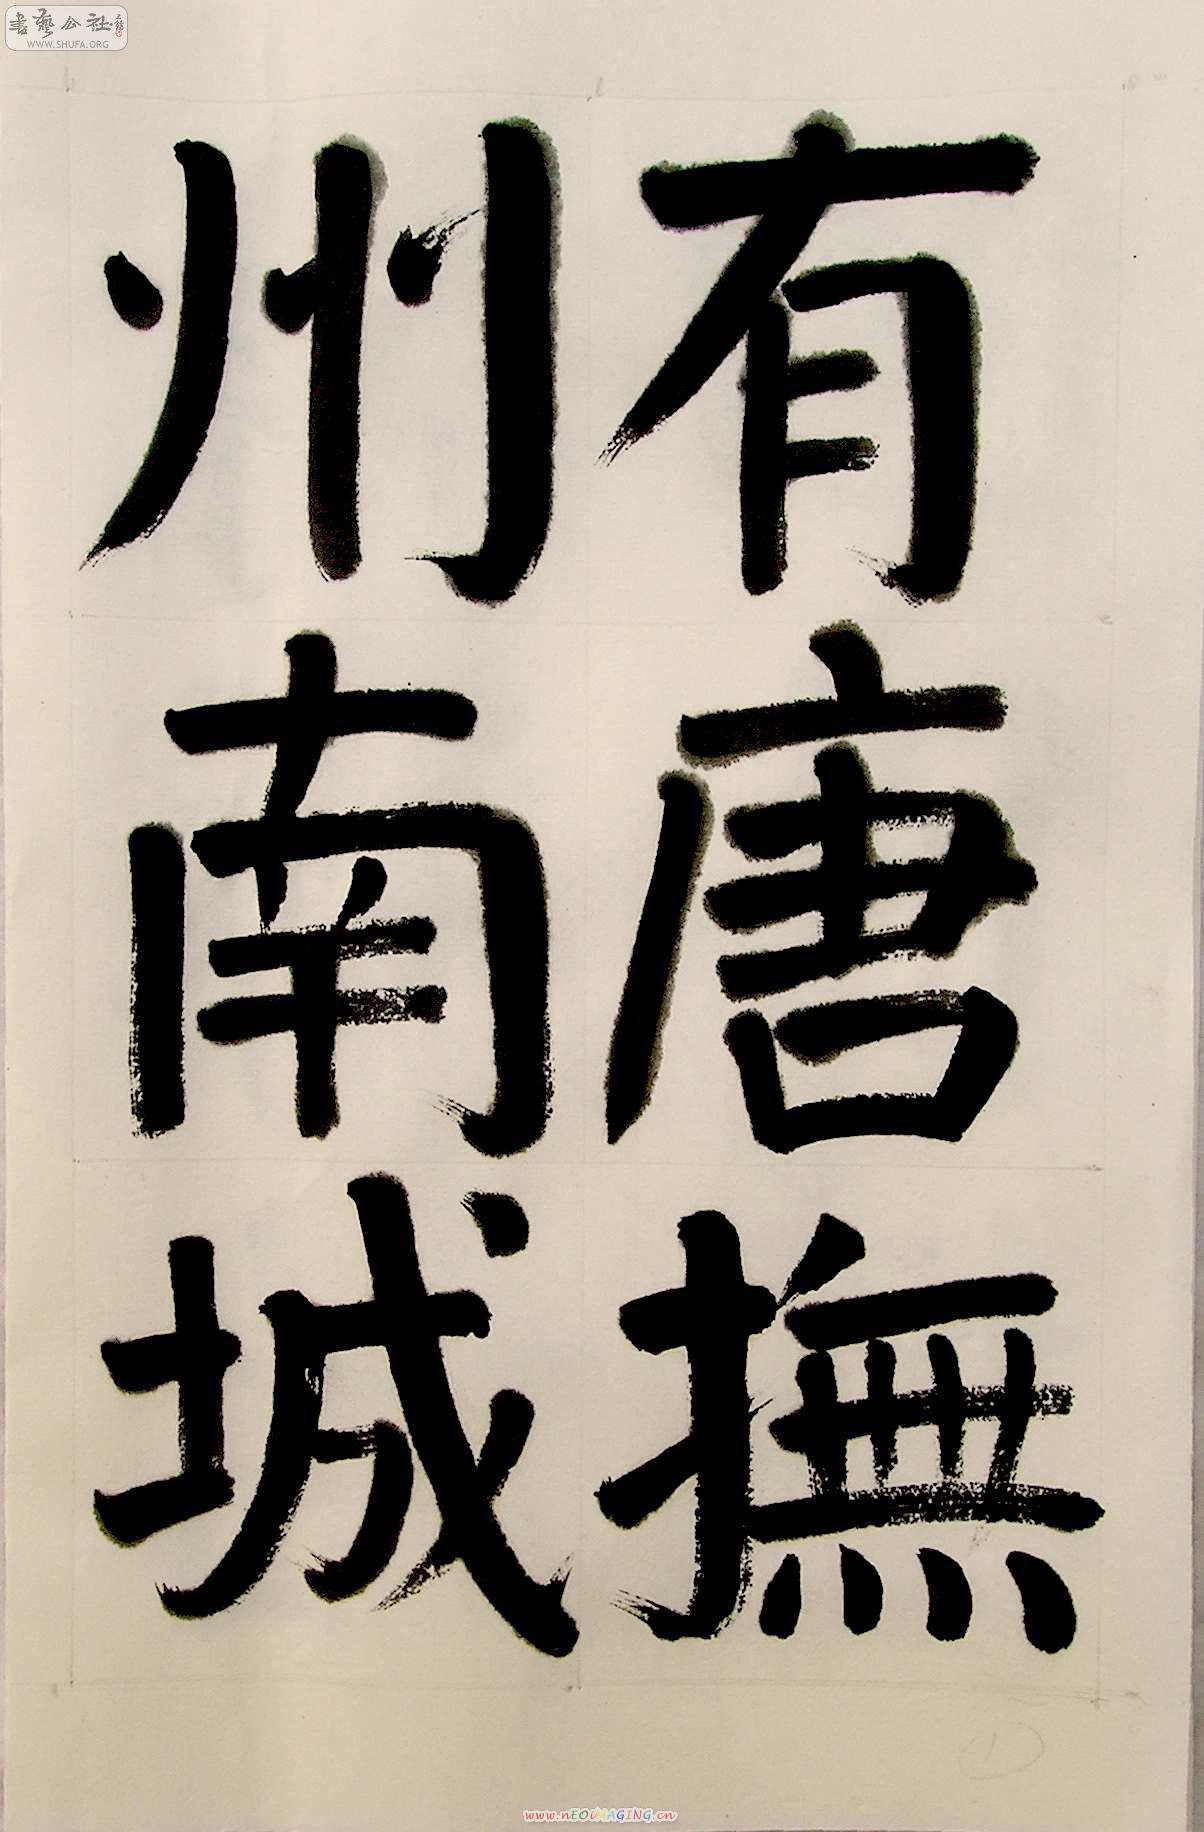 有唐撫
州南城
書藝公社
WWW.SHUFA.ORG
www.nEOiMAGING.cn